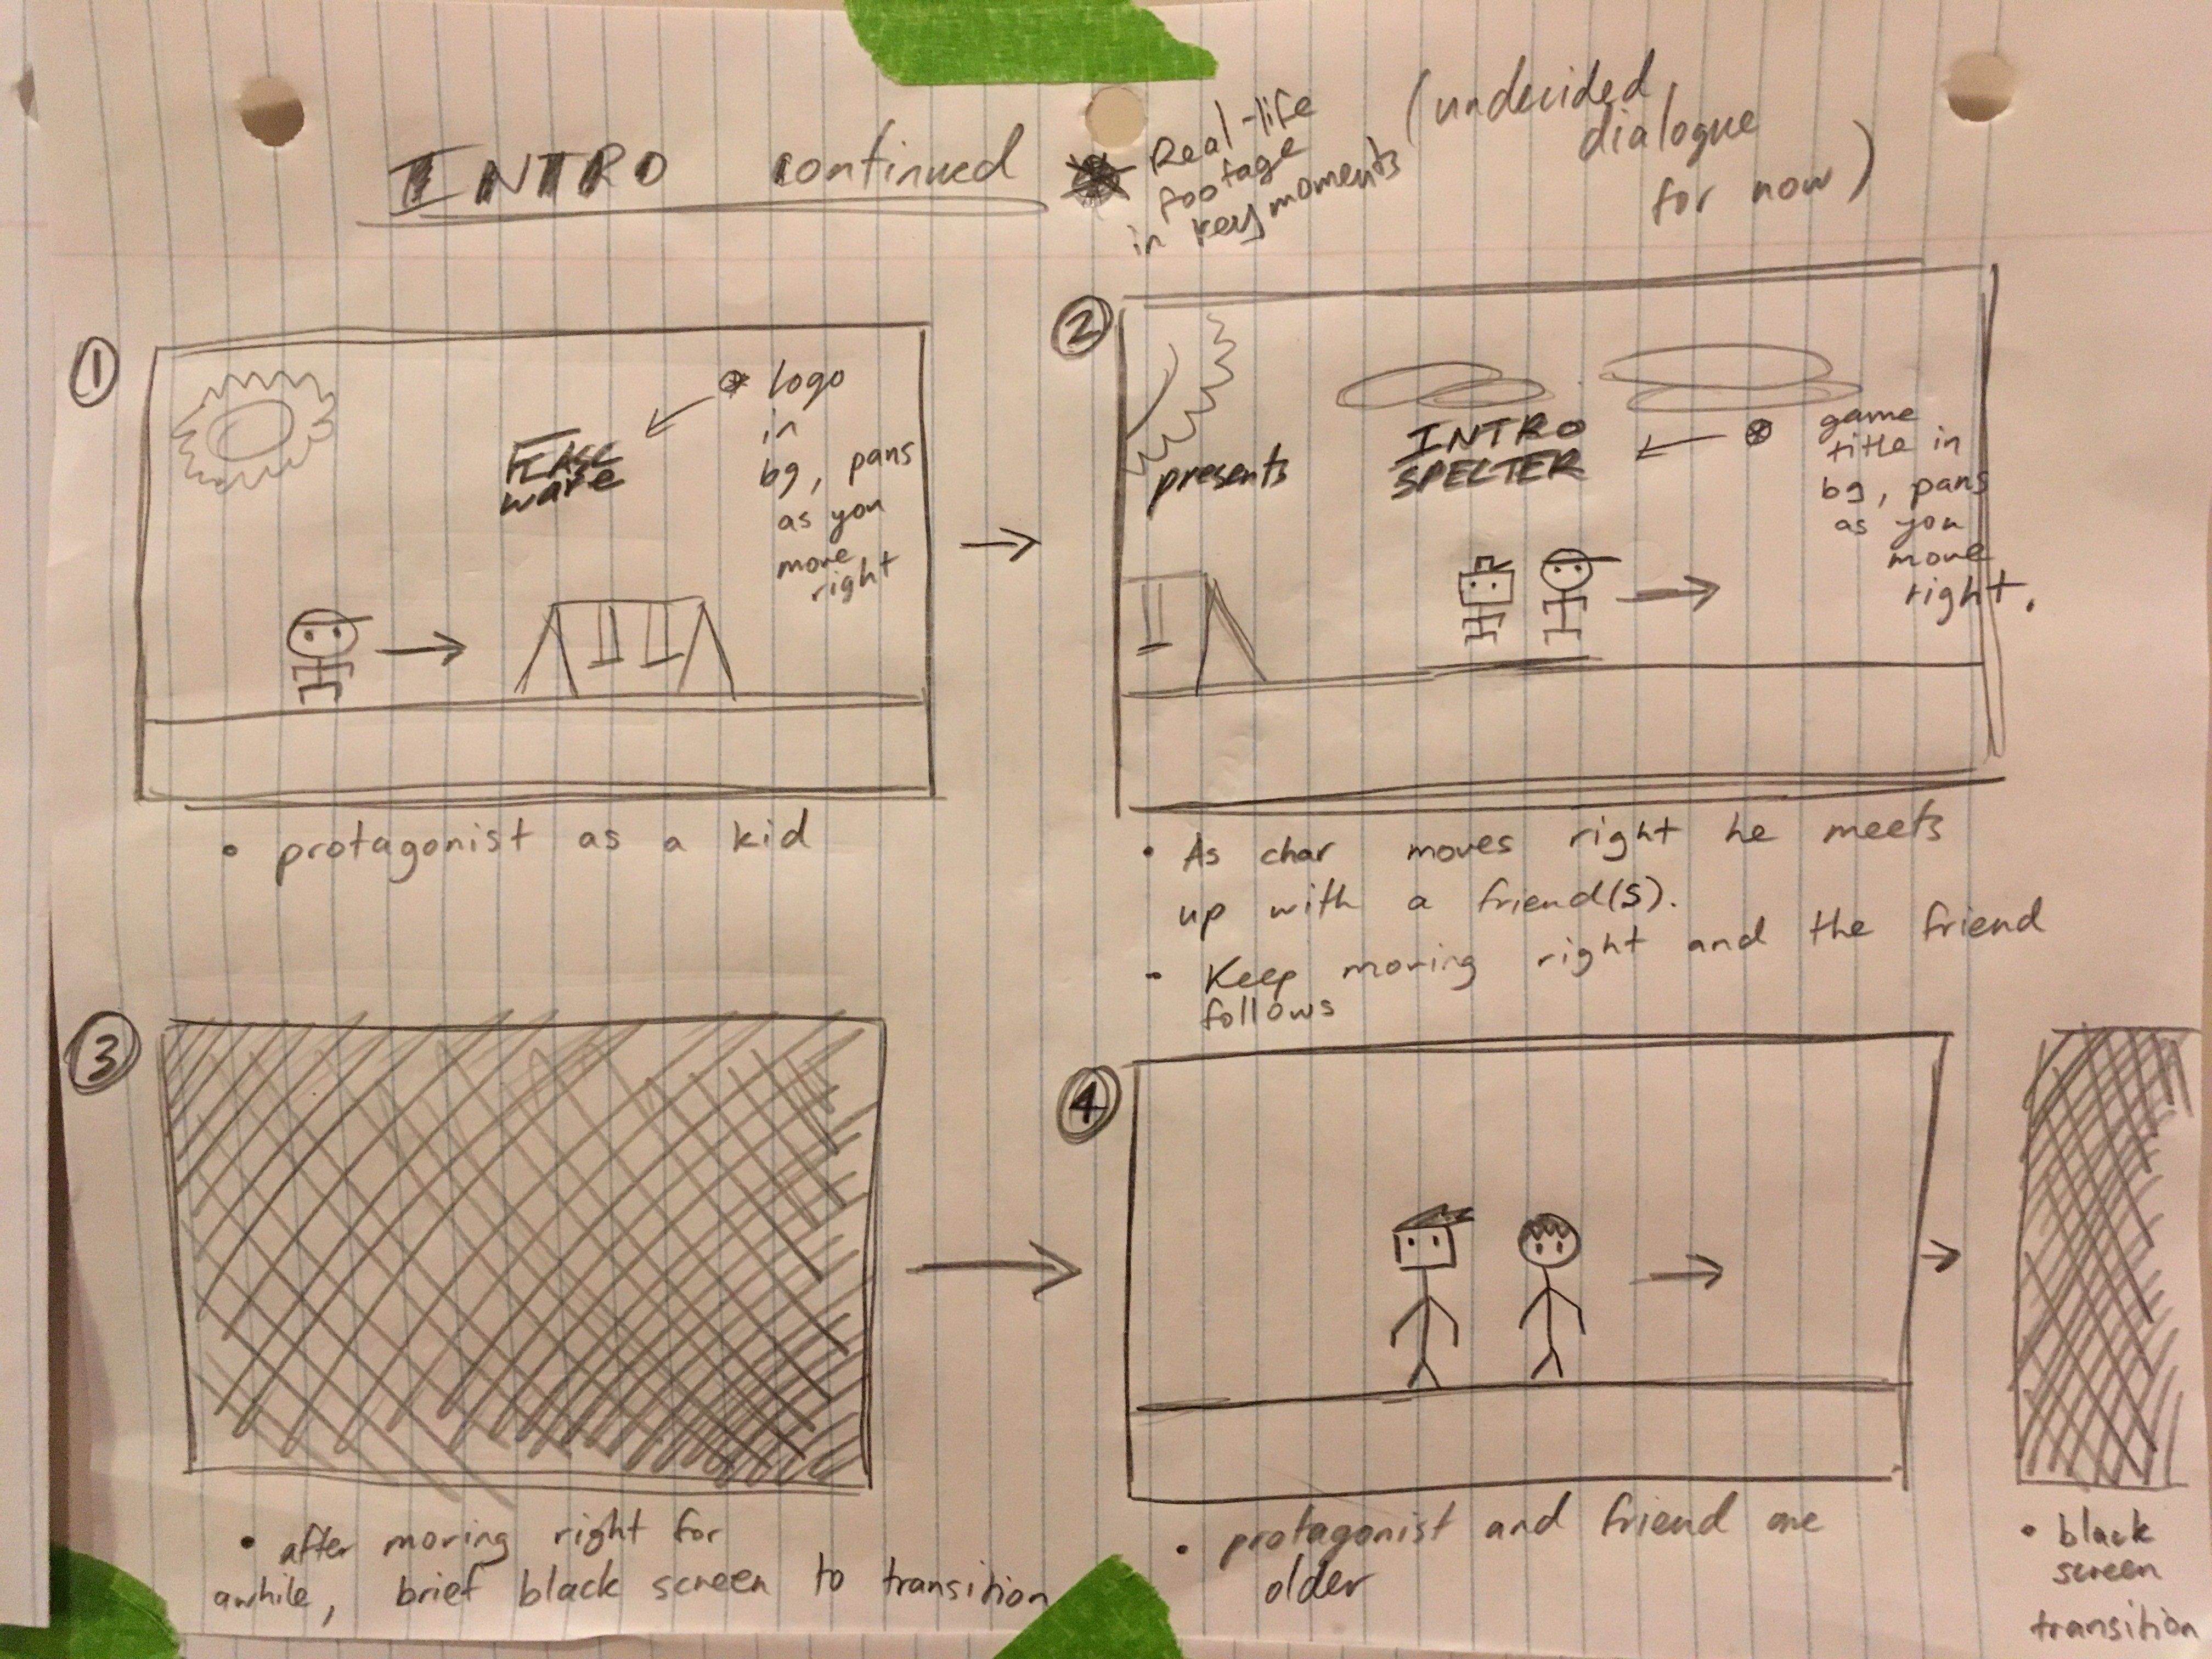 INTRO continued
Real-life
footage
in key moments
(undecided
dialogue
for now)
1
logo
in
bg, pans
as you
move
right
ware
• protagonist as a kid
2
presents
INTRO
SPECTER
game
title in
bg, pans
as you
move
right.
• As char moves right he meets
up with a friend(s).
- Keep moving right and the friend
follows
3
• after moving right for
awhile, brief black screen to transition
4
• protagonist and friend are
older
• black
screen
transition